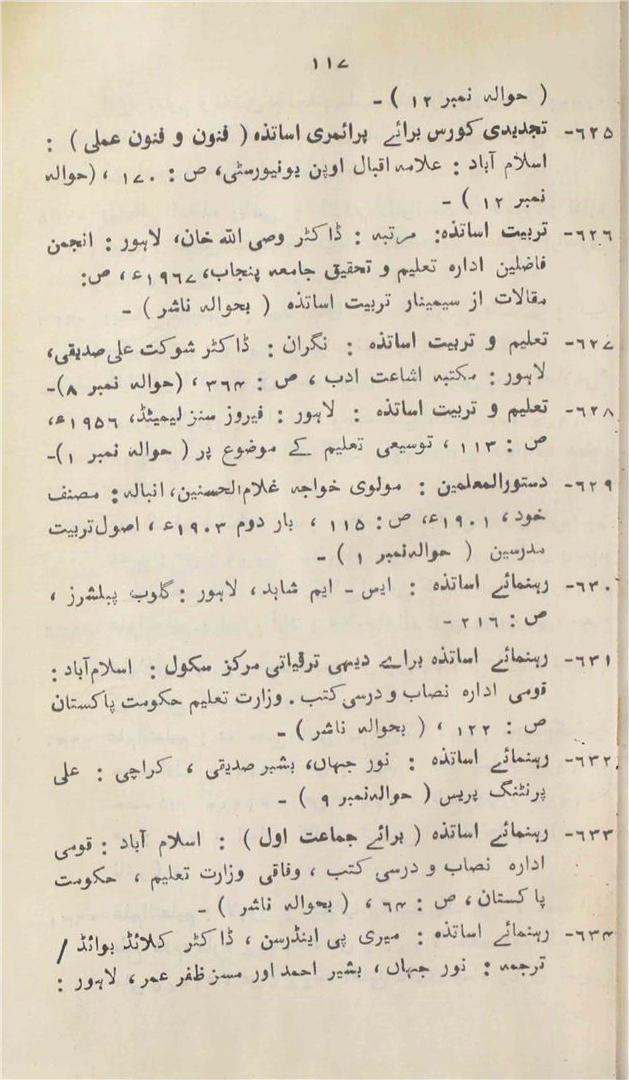 ۱۱۷
( حوالہ نمبر ۱۲ ) -
۶۲۵- تجدیدی کورس برائے پرائمری اساتذہ ( فنون و فنون عملی ) :
اسلام آباد : علامہ اقبال اوپن یونیورسٹی، ص : ۱۷۰ ، (حوالہ
نمبر ۱۲ ) -
۶۲۶- تربیت اساتذہ: مرتبہ : ڈاکٹر وصی اللہ خان، لاہور : انجمن
فاضلین ادارہ تعلیم و تحقیق جامعہ پنجاب، ۱۹۶۷ء، ص:
مقالات از سیمینار تربیت اساتذہ ( بحوالہ ناشر ) -
۶۲۷- تعلیم و تربیت اساتذہ : نگران : ڈاکٹر شوکت علی صدیقی،
لاہور : مکتبہ اشاعت ادب ، ص : ۳۶۴ ، (حوالہ نمبر ۸)-
۶۲۸- تعلیم و تربیت اساتذہ : لاہور : فیروز سنز لیمیٹڈ، ۱۹۵۶ء،
ص : ۱۱۳ ، توسیعی تعلیم کے موضوع پر ( حوالہ نمبر ۱)-
۶۲۹- دستورالمعلمین : مولوی خواجہ غلام الحسنین، انبالہ : مصنف
خود، ۱۹۰۱ء، ص : ۱۱۵ ، بار دوم ۱۹۰۳ء ، اصول تربیت
مدرسین ( حوالہ نمبر ۱ ) -
۶۳۰- رہنمائے اساتذہ : ایس - ایم شاہد، لاہور : گلوب پبلشرز ،
ص : ۲۱۶ -
۶۳۱- رہنمائے اساتذہ براے دیہی ترقیاتی مرکز سکول : اسلام آباد :
قومی ادارہ نصاب و درسی کتب . وزارت تعلیم حکومت پاکستان
ص : ۱۲۲ ، ( بحوالہ ناشر ) -
۶۳۲- رہنمائے اساتذہ : نور جہاں، بشیر صدیقی ، کراچی : علی
پرنٹنگ پریس ( حوالہ نمبر ۹ ) -
۶۳۳- رہنمائے اساتذہ ( برائے جماعت اول ) : اسلام آباد : قومی
ادارہ نصاب و درسی کتب ، وفاقی وزارت تعلیم ، حکومت
پاکستان ، ص : ۶۴ ، ( بحوالہ ناشر ) -
۶۳۴- رہنمائے اساتذہ : میری پی اینڈرسن ، ڈاکٹر کلائڈ بوائڈ /
ترجمہ : نور جہاں ، بشیر احمد اور مسز ظفر عمر، لاہور :